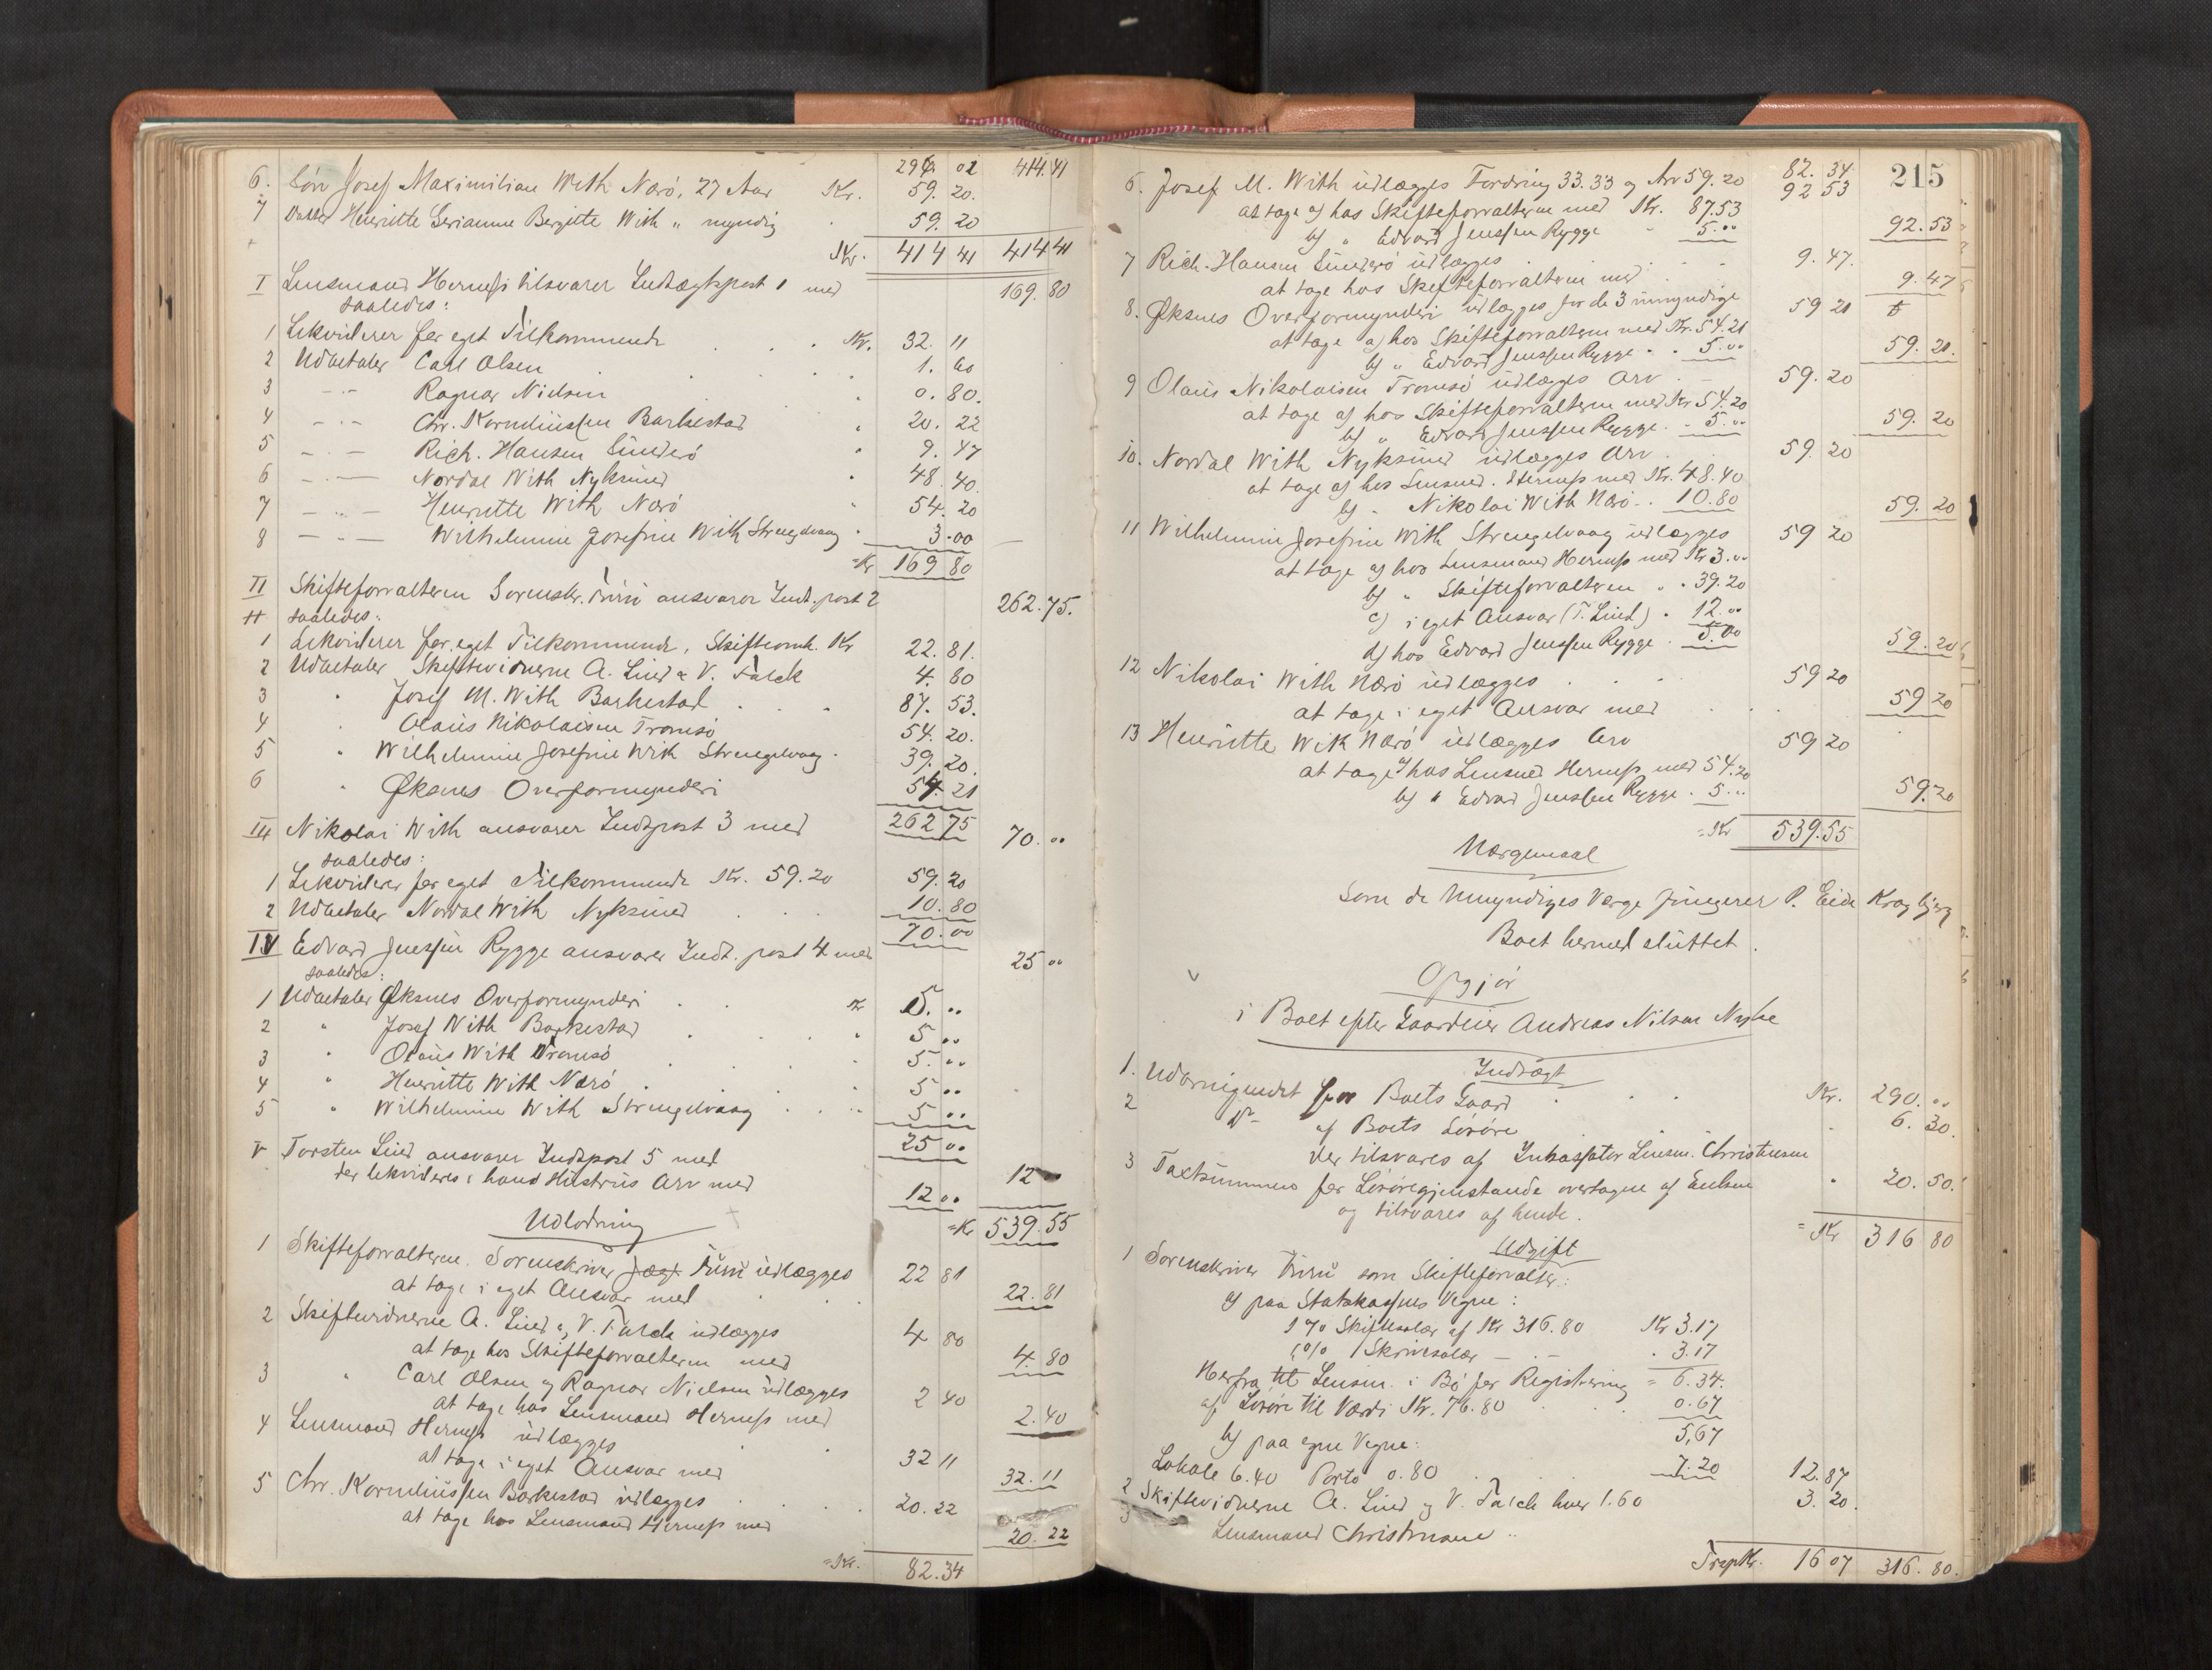 296 02 414.41
6. Søn Josef Maximilian With Nærø, 27 Aar Kr. 59. 20.
7 Datter Henriette Serianne Bergitte With " myndig 59. 20
Kr. 414 41 414 41
I Lensmand Herness tilsvarer Indtægtspost 1 med 169. 80
saaledes:
1 Lekviderer for eget Tilkommende Kr. 32. 11
2 Udbetaler Carl Olsen 1. 60
3 - " - Ragnar Nielsen 0. 80.
4 - " - Chr. Korneliussen Barkestad 20. 22
5 - " - Rich. Hansen Sunderö 9. 47
6 - " - Nordal With Nyksund 48. 40.
7 - " - Henriette With Nærö 54. 20
8 - " - Wilhelmine Josefine With Strengelvaag 3.00
=Kr 169 80
II Skifteforvalteren Sorenskr. Juul ansvarer Indt. post 2 262.75.
saaledes:
1 Lekviderer for eget Tilkommende, Skifteomk. Kr 22. 81.
2 Udbetaler Skiftevidnerne A. Lind & V. Falck 4. 80
3 " Josef M. With Barkestad 87. 53.
4 " Olaus Nikolaisen Tromsö 54. 20.
5 " Wilhelmine Josefine With Strengelvaag 39. 20.
6 " Øksnes Overformynderi 54. 21
262 75
III Nikolai With ansvarer Indtpost 3 med 70. "
saaledes:
1 Lekviderer for eget Tilkommende Kr. 59.20 59. 20
2 Udbetaler Nordal With Nyksund 10. 80
70.00
IV Edvard Jenssen Rygge ansvarer Indt. post 4 med 25 "
saaledes:
1 Udbetaler Øksnes Overformynderi Kr 5. "
2 " Josef With Barkestad " 5 "
3 " Olaus With Tromsö 5. "
4 " Henriette With Nærö 5 "
5 " Wilhelmine With Strengelvaag 5 "
25 "
V Torsten Lind ansvarer Indtpost 5 med 12
der lekvideres i hans Hustrus Arv med 12 "
=Kr 539.55
Udlodning
1 Skifteforvalteren Sorenskriver Juul udlægges 22 81
at tage i eget Ansvar med 22.81
2 Skiftevidnerne A. Lind & V. Falck udlægges 4 80
at tage hos Skifteforvalteren med 4. 80
3 " Carl Olsen og Ragnar Nielsen udlægges 2 40
at tage hos Lensmand Herness med 2.40
4 Lensmand Herness udlægges 32 11
at tage i eget Ansvar med 32.11
5 Chr. Korneliussen Barkestad udlægges 20. 22
at tage hos Lensmand Herness med 20. 22
=Kr. 82.34
215
82. 34
6. Josef M. With udlægges Fordring 33.33 og Arv 59.20 92 53
at tage a) hos Skifteforvalteren med Kr. 87.53
b) " Edvard Jenssen Rygge - 5."" 92.53
7 Rich. Hansen Sunderö udlægges 9. 47.
at tage hos Skifteforvalteren med 9.47
8. Øksnes Overformynderi udlægges for de 3 umyndige 59 21
at tage a) hos Skifteforvalteren med Kr. 54.21
b) " Edvard Jenssen Rygge " 5."" 59. 21.
9 Olaus Nikolaisen Tromsö udlægges Arv 59. 20
at tage a) hos Skifteforvalteren med Kr 54.20
b) " Edvard Jenssen Rygge " 5."" 59. 20
10. Nordal With Nyksund udlægges Arv 59. 20
at tage a) hos Lensmd. Herness med Kr. 48.40
b) " Nikolai With Nærö 10.80 59. 20
11 Wilhelmine Josefine With Strengelvaag udlægges 59 20
at tage a) hos Lensmand Herness med Kr 3.""
b) " Skifteforvalteren " " 39.20
c) i eget Ansvar (T. Lind) " 12.""
d) hos Edvard Jenssen Rygge 5.00 59.20
12 Nikolai With Nærö udlægges 59 20
at tage i eget Ansvar med 59 20
13 Henriette With Nærö udlægges Arv 59 20
at tage a) hos Lensmd Herness med 54.20
b) " Edvard Jenssen Rygge 5."" 59.20
=Kr 539.55
Værgemaal
Som de Umyndiges Værge fungerer P. Eide Kragbjerg
Boet hermed sluttet.
Opgjör
i Boet efter Gaardeier Andreas Nilsen Nykse
Indtægt
1. Udbringendet for Boets Gaard Kr. 290. "
2 Do af Boets Lösöre 6. 30.
der tilsvares af Inkassator Lensm. Christensen
3 Taxtsummen for Lösöregjenstande overtagne af Enken " 20. 50.
og tilsvares af hende.
=Kr 316 80
Udgift
1 Sorenskriver Juul som Skifteforvalter:
a) paa Statskassens Vegne:
1 % Skiftesalær af Kr 316.80 Kr 3.17
1 % Skrivesalær - " - " 3.17
= 6.34.
Herfra til Lensm. i Bö for Registrering
af Lösöre til Værdi Kr. 76.80 0.67
5,67
b) paa egne Vegne:
Lokale 6.40 Porto 0.80 7.20 12.87
2 Skiftevidnerne A. Lind og V. Falck hver 1.60 3. 20.
3 Lensmand Christensen "
Trsp Kr. 16 07 316. 80.